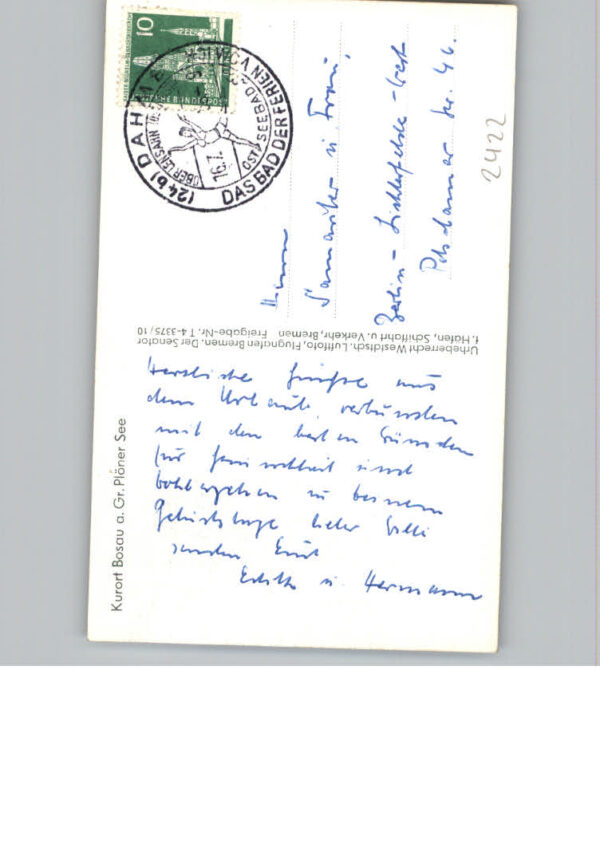 10
(24b) DAHME
DAS BAD DER FERIEN
OSTSEEBAD
16.7.
2422
Herrn
Samariter u. Frau,
Berlin - Lichterfelde - West
Potsdamer Str. 46.
Urheberrecht Westdtsch. Luftfoto, Flughafen Bremen. Der Senator
f. Häfen, Schiffahrt u. Verkehr, Bremen Freigabe-Nr. T 4-3375/10
Kurort Bosau a. Gr. Plöner See
Herzliche Grüße aus
dem Urlaub, verbunden
mit den besten Wünschen
für Gesundheit und
Wohlergehen zu Deinem
Geburtstage lieber Willi
senden Euch
Edith u. Hermann